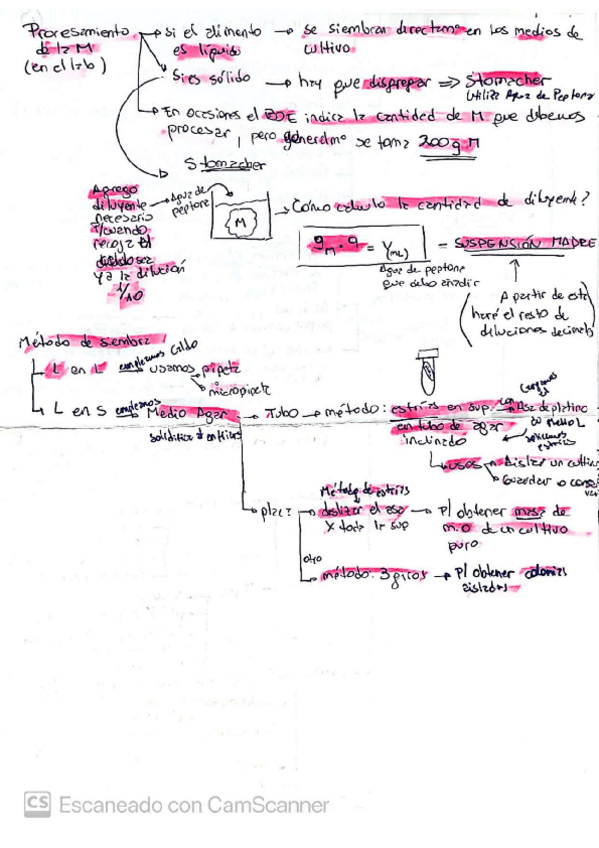 Procesamiento → si el alimento → se siembran directam° en los medios de
de la M es líquido cultivo
(en el lab)
Si es sólido → hay que disgregar ⇒ Stomacher
Utiliza Agua de Peptona
→ En ocasiones el BOE indica la cantidad de M que debemos
procesar, pero generalm° se toma 200 g M
Stomacher
Agrego
diluyente
necesario
Agua de
peptona
M
→ Cómo calculo la cantidad de diluyente?
y ya la dilución
1/10
gM · 9 = V(mL) = SUSPENSIÓN MADRE
Agua de peptona
que debo añadir
A partir de esta
haré el resto de
diluciones decimales
Método de siembra
L en L empleamos caldo usamos → pipeta
→ micropipeta
L en S empleamos Medio Agar → Tubo → método: estrías en sup. con Asa de platino
en tubo de agar
inclinado
→ usos → Aislar un cultivo
→ Guardar o
→ placa
Método de estrías
deslizar el asa → P/ obtener masa de
x toda la sup m.o de un cultivo
puro
otro
método 3 giros → P/ obtener colonias
aisladas
CS Escaneado con CamScanner